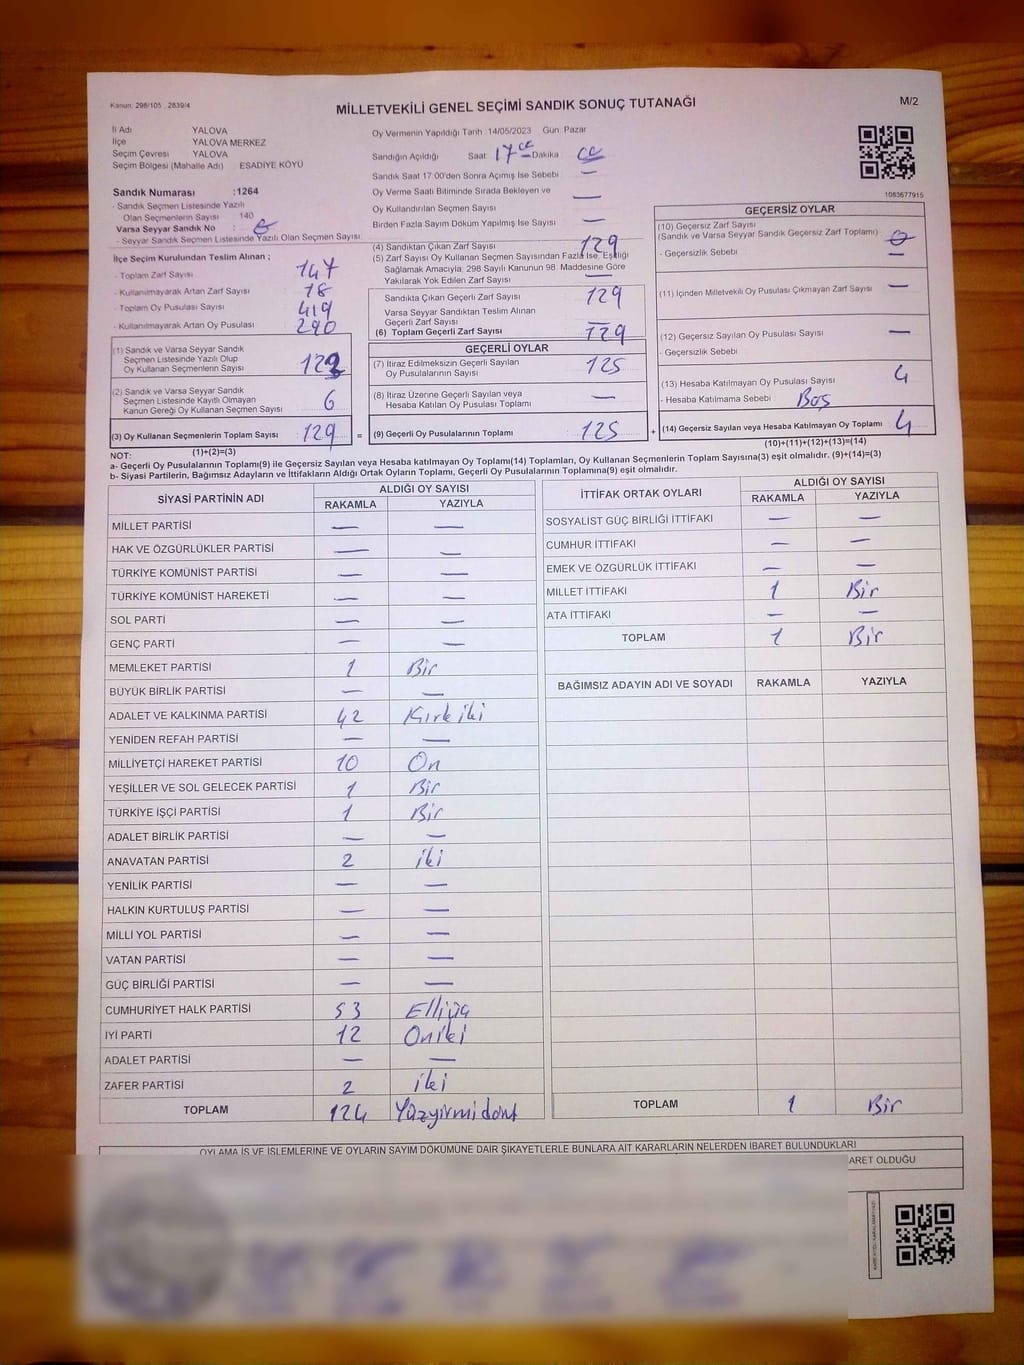 Kanun: 298/105 , 2839/4
MİLLETVEKİLİ GENEL SEÇİMİ SANDIK SONUÇ TUTANAĞI
M/2
İl Adı YALOVA
İlçe YALOVA MERKEZ
Seçim Çevresi YALOVA
Seçim Bölgesi (Mahalle Adı) ESADİYE KÖYÜ
Sandık Numarası :1264
- Sandık Seçmen Listesinde Yazılı
Olan Seçmenlerin Sayısı 140
Varsa Seyyar Sandık No :
- Seyyar Sandık Seçmen Listesinde Yazılı Olan Seçmen Sayısı:
İlçe Seçim Kurulundan Teslim Alınan ;
- Toplam Zarf Sayısı 147
- Kullanılmayarak Artan Zarf Sayısı 18
- Toplam Oy Pusulası Sayısı 419
- Kullanılmayarak Artan Oy Pusulası 290
(1) Sandık ve Varsa Seyyar Sandık
Seçmen Listesinde Yazılı Olup
Oy Kullanan Seçmenlerin Sayısı 123
(2) Sandık ve Varsa Seyyar Sandık
Seçmen Listesinde Kayıtlı Olmayan
Kanun Gereği Oy Kullanan Seçmen Sayısı 6
(3) Oy Kullanan Seçmenlerin Toplam Sayısı 129 =
(1)+(2)=(3)
Oy Vermenin Yapıldığı Tarih :14/05/2023 Gün: Pazar
Sandığın Açıldığı Saat: 17 Dakika
Sandık Saat 17:00'den Sonra Açımış İse Sebebi —
Oy Verme Saati Bitiminde Sırada Bekleyen ve
Oy Kullandırılan Seçmen Sayısı —
Birden Fazla Sayım Döküm Yapılmış İse Sayısı —
(4) Sandıktan Çıkan Zarf Sayısı 129
(5) Zarf Sayısı Oy Kullanan Seçmen Sayısından Fazla İse, Eşitliği
Sağlamak Amacıyla; 298 Sayılı Kanunun 98. Maddesine Göre
Yakılarak Yok Edilen Zarf Sayısı —
Sandıkta Çıkan Geçerli Zarf Sayısı 129
Varsa Seyyar Sandıktan Teslim Alınan
Geçerli Zarf Sayısı —
(6) Toplam Geçerli Zarf Sayısı 129
GEÇERLİ OYLAR
(7) İtiraz Edilmeksizin Geçerli Sayılan
Oy Pusulalarının Sayısı 125
(8) İtiraz Üzerine Geçerli Sayılan veya
Hesaba Katılan Oy Pusulası Toplamı —
(9) Geçerli Oy Pusulalarının Toplamı 125 +
1083677915
GEÇERSİZ OYLAR
(10) Geçersiz Zarf Sayısı
(Sandık ve Varsa Seyyar Sandık Geçersiz Zarf Toplamı) 0
- Geçersizlik Sebebi —
(11) İçinden Milletvekili Oy Pusulası Çıkmayan Zarf Sayısı —
(12) Geçersiz Sayılan Oy Pusulası Sayısı —
- Geçersizlik Sebebi
(13) Hesaba Katılmayan Oy Pusulası Sayısı 4
- Hesaba Katılmama Sebebi Boş
(14) Geçersiz Sayılan veya Hesaba Katılmayan Oy Toplamı 4
(10)+(11)+(12)+(13)=(14)
NOT:
a- Geçerli Oy Pusulalarının Toplamı(9) ile Geçersiz Sayılan veya Hesaba katılmayan Oy Toplamı(14) Toplamları, Oy Kullanan Seçmenlerin Toplam Sayısına(3) eşit olmalıdır. (9)+(14)=(3)
b- Siyasi Partilerin, Bağımsız Adayların ve İttifakların Aldığı Ortak Oyların Toplamı, Geçerli Oy Pusulalarının Toplamına(9) eşit olmalıdır.
SİYASİ PARTİNİN ADI ALDIĞI OY SAYISI
RAKAMLA YAZIYLA
MİLLET PARTİSİ — —
HAK VE ÖZGÜRLÜKLER PARTİSİ — —
TÜRKİYE KOMÜNİST PARTİSİ — —
TÜRKİYE KOMÜNİST HAREKETİ — —
SOL PARTİ — —
GENÇ PARTİ — —
MEMLEKET PARTİSİ 1 Bir
BÜYÜK BİRLİK PARTİSİ — —
ADALET VE KALKINMA PARTİSİ 42 Kırkiki
YENİDEN REFAH PARTİSİ — —
MİLLİYETÇİ HAREKET PARTİSİ 10 On
YEŞİLLER VE SOL GELECEK PARTİSİ 1 Bir
TÜRKİYE İŞÇİ PARTİSİ 1 Bir
ADALET BİRLİK PARTİSİ — —
ANAVATAN PARTİSİ 2 iki
YENİLİK PARTİSİ — —
HALKIN KURTULUŞ PARTİSİ — —
MİLLİ YOL PARTİSİ — —
VATAN PARTİSİ — —
GÜÇ BİRLİĞİ PARTİSİ — —
CUMHURİYET HALK PARTİSİ 53 Elliüç
İYİ PARTİ 12 Oniki
ADALET PARTİSİ — —
ZAFER PARTİSİ 2 iki
TOPLAM 124 Yüzyirmidört
İTTİFAK ORTAK OYLARI ALDIĞI OY SAYISI
RAKAMLA YAZIYLA
SOSYALIST GÜÇ BİRLİĞİ İTTİFAKI — —
CUMHUR İTTİFAKI — —
EMEK VE ÖZGÜRLÜK İTTİFAKI — —
MİLLET İTTİFAKI 1 Bir
ATA İTTİFAKI — —
TOPLAM 1 Bir
BAĞIMSIZ ADAYIN ADI VE SOYADI RAKAMLA YAZIYLA
TOPLAM 1 Bir
OYLAMA İŞ VE İŞLEMLERİNE VE OYLARIN SAYIM DÖKÜMÜNE DAİR ŞİKAYETLERLE BUNLARA AİT KARARLARIN NELERDEN İBARET BULUNDUKLARI
ARET OLDUĞU